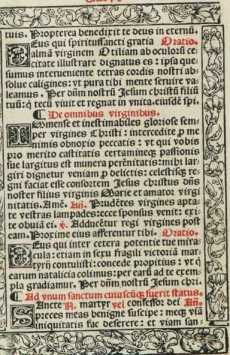 tuis. Propterea benedixit te deus in eternū.
Deus qui spiritussancti gratia Oratio.
almā virginem Otiliam ab oculorū ce-
citate illustrare dignatus es: ipsa que-
sumus interueniente tetras cordis nostri ab-
solue caligines: vt pura tibi mente seruire va-
leamus. Per dūm nostrū Jesum christū filiū
tuū: q̄ tecū viuit et regnat in vnita. eiusdē spi.
De omnibus virginibus.
Omense et inestimabiles gloriose sem-
per virgines Christi: intercedite p̄ me
nimis obnoxio peccatis: vt qui vobis
pro merito castitatis certamineq̄ passionis
tue largitus est munera perēnitatis: mihi lar-
giri dignetur veniam p̄ delictis: celestisq̄ re-
gni faciat esse consortem Jesus christus dn̄s
noster filius virginis Marie et amator virgi-
nitatis. Amē. Prudētes virgines apta-
te vestras lampades: ecce sponsus venit: exi-
te obuiā ei. Adducētur regi virgines post
eam. Proxime eius afferentur tibi. Oratio.
Deus qui inter cetera potentie tue mira-
cula: etiam in sexu fragili victoriā mar-
tyrij contulisti: concede propitius: vt q̄
earum natalicia colimus: per earū ad te exem-
pla gradiamur. Per dūm nostrū Jesum chri-
Ad vnum sanctum cuiuscūq̄ fuerit status.
Sancte N. martyr vel confessor dei
preces meas benigne suscipe: mecq̄ vīā
iniquitatis fac deserere: et viam san-